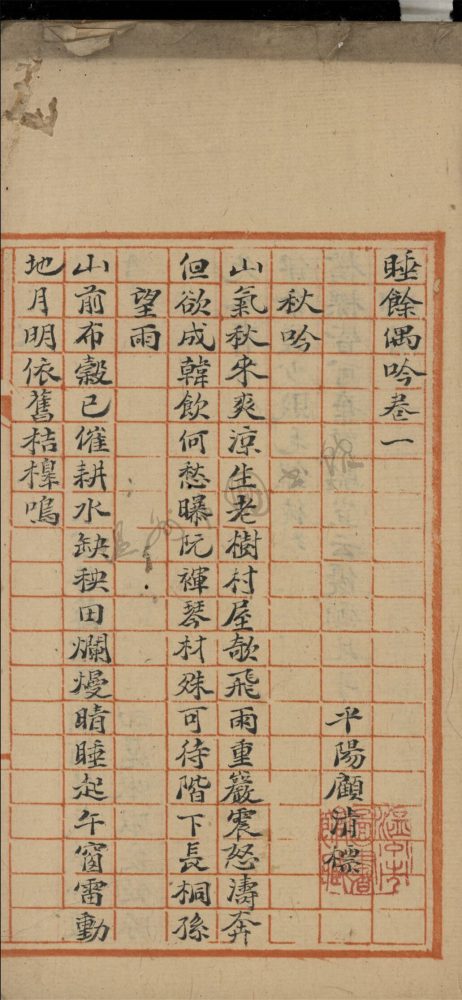 睡餘偶吟卷一
平陽顧清標
秋吟
山氣秋來爽涼生老樹村屋欹飛雨重巖震怒濤奔
但欲成韓飲何愁曝阮褌琴材殊可待階下長桐孫
望雨
山前布穀已催耕水缺秧田爛熳晴睡起午窗雷動
地月明依舊桔槔鳴